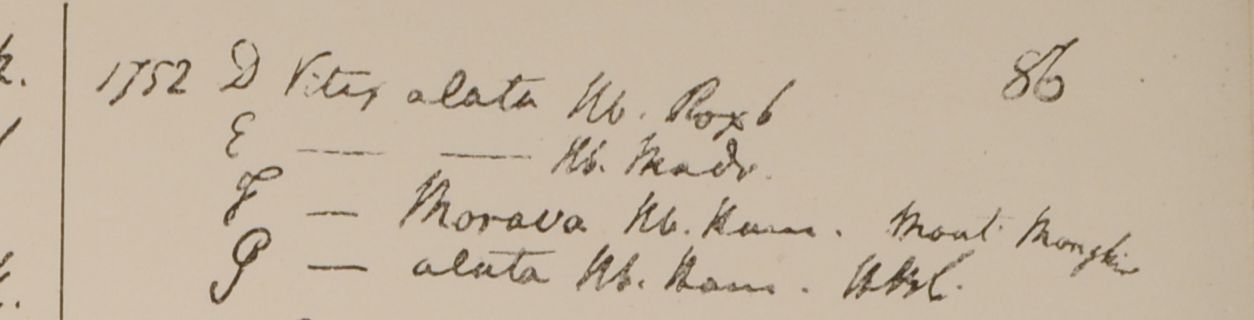 1752 D Vitex alata Hb. Roxb 86
E — — Hb. Madr.
F — Morava Hb. Ham. Mont
G — alata Hb. Ham.